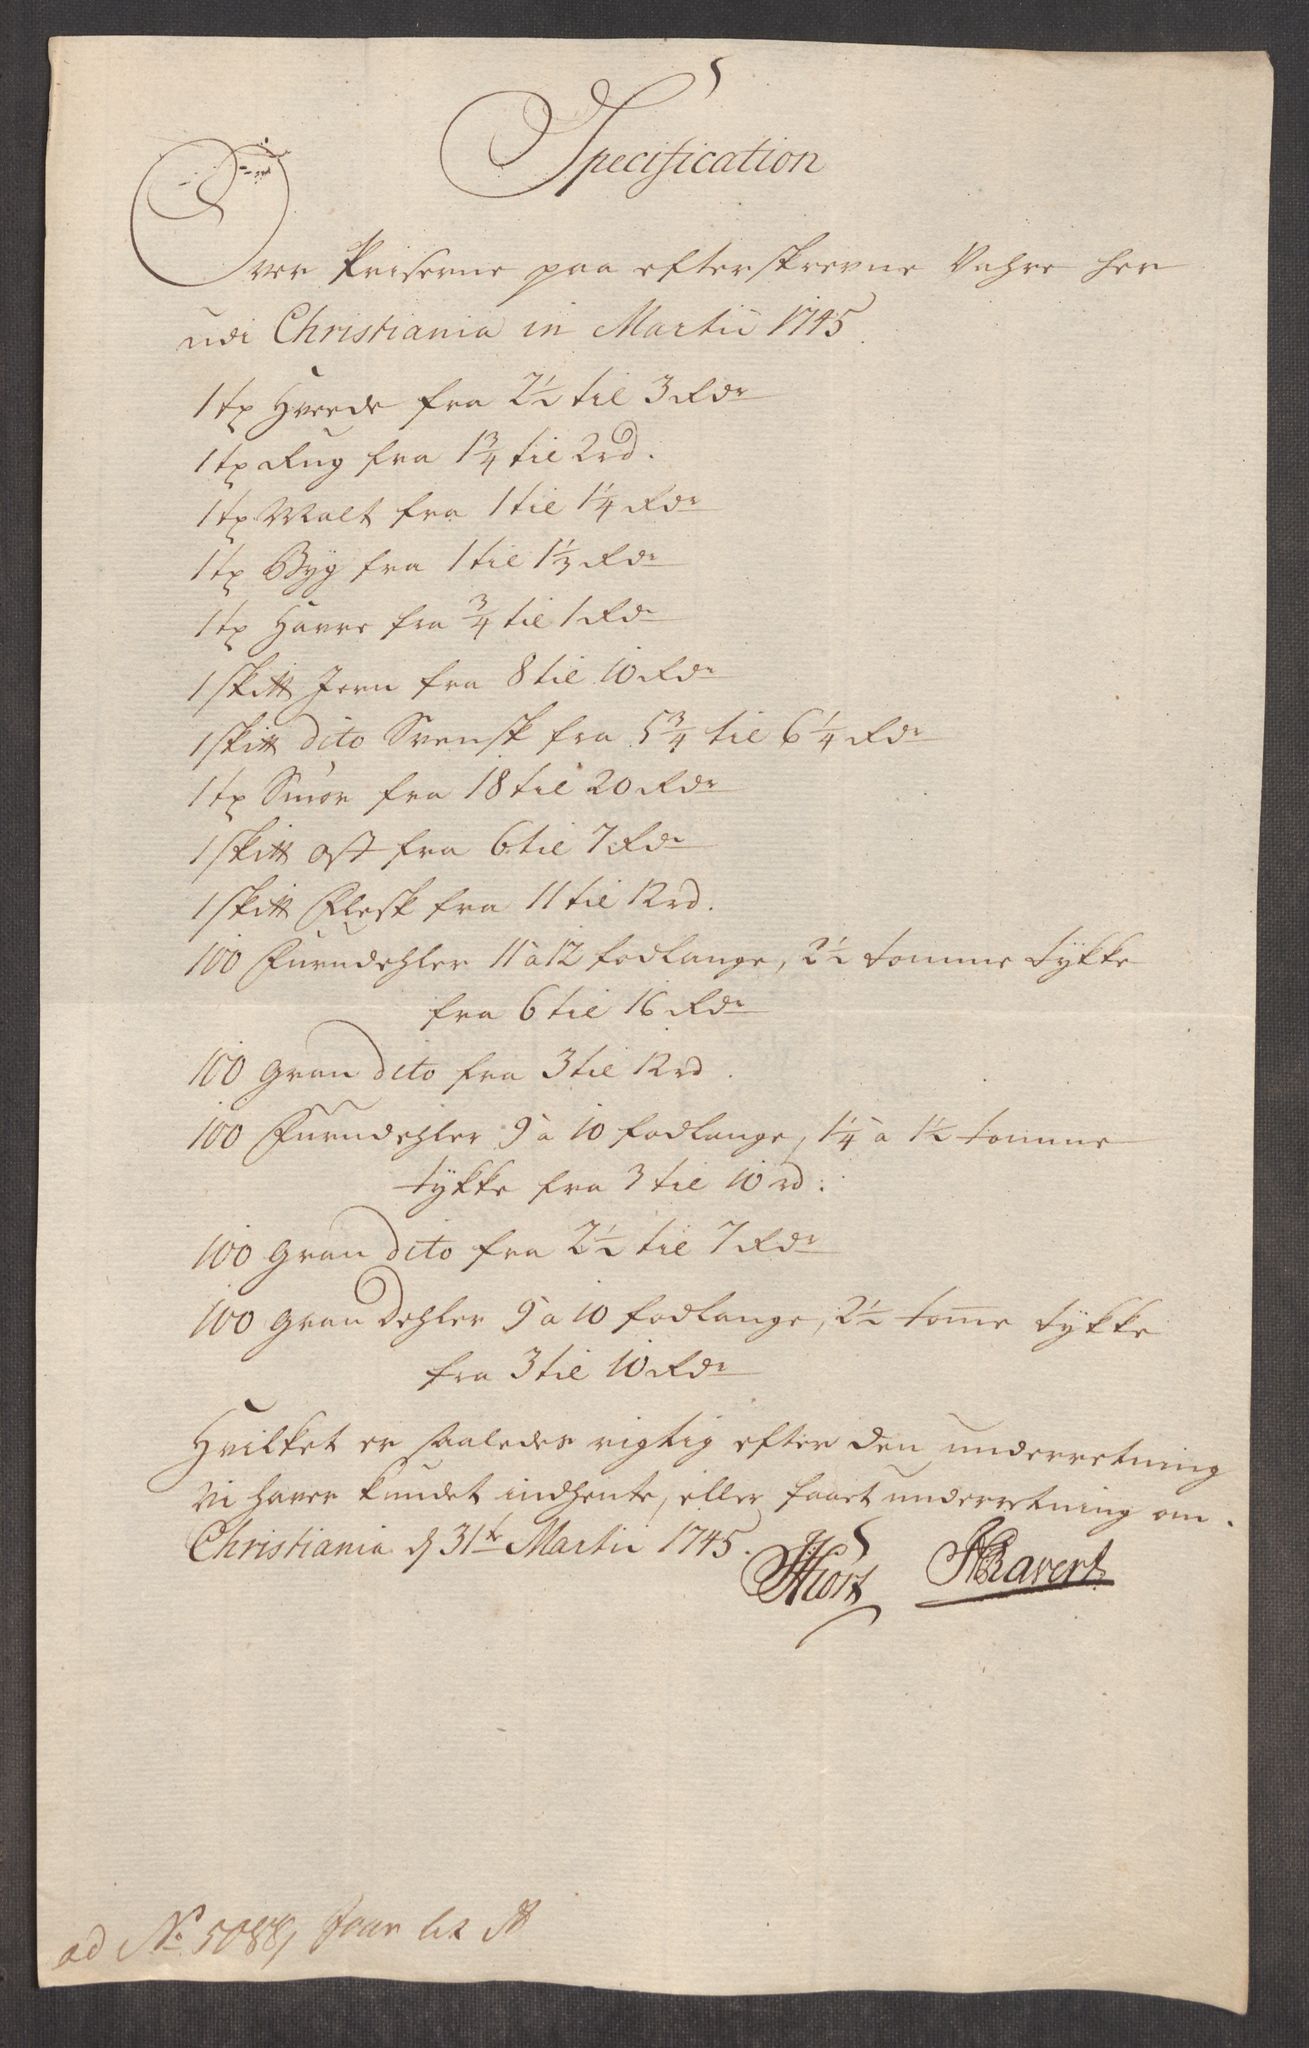 Specification
Over Priserne paa efterskrevne Vahre her
udi Christiania in Martii 1745.
1 tp Hvede fra 2½ til 3 Rdr
1 tp Rug fra 1¾ til 2 rd.
1 tp Malt fra 1 til 1¼ Rdr
1 tp Byg fra 1 til 1⅓ Rdr
1 tp Havre fra ¾ til 1 Rdr
1 skitt Jern fra 8 til 10 Rdr
1 skitt dito Svensk fra 5¾ til 6¼ Rdr
1 tp Smör fra 18 til 20 Rdr
1 skitt Ost fra 6 til 7 Rdr
1 skitt Flesk fra 11 til 12 rd.
100 Furudehler 11 a 12 fodlange, 2½ tomme tykke
fra 6 til 16 Rdr
100 Gran dito fra 3 til 12 rd.
100 Furudehler 9 a 10 fodlange, 1¼ a 1½ tomme
tykke fra 3 til 10 rd.
100 Gran dito fra 2½ til 7 Rdr
100 Gran Dehler 9 a 10 fodlange, 2½ tom̅e tykke
fra 3 til 10 Rdr
Hvilket er saaledes rigtig efter den underretning
vi haver kundet indhente, eller faaet underretning om.
Christiania d 31te Martii 1745.
Hiort Ravert
ad No 5088